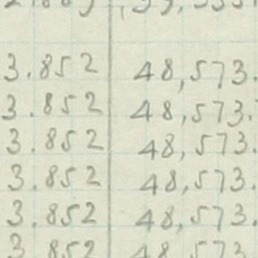 3.852 48,573.
3.852 48,573.
3.852 48,573.
3.852 48,573.
3.852 48,573.
3 852 48 573